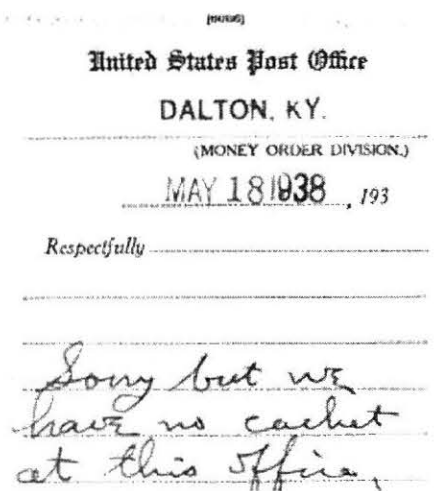 United States Post Office
DALTON, KY.
(MONEY ORDER DIVISION.)
MAY 18 1938 , 193
Respectfully
Sorry but we
have no cachet
at this office,